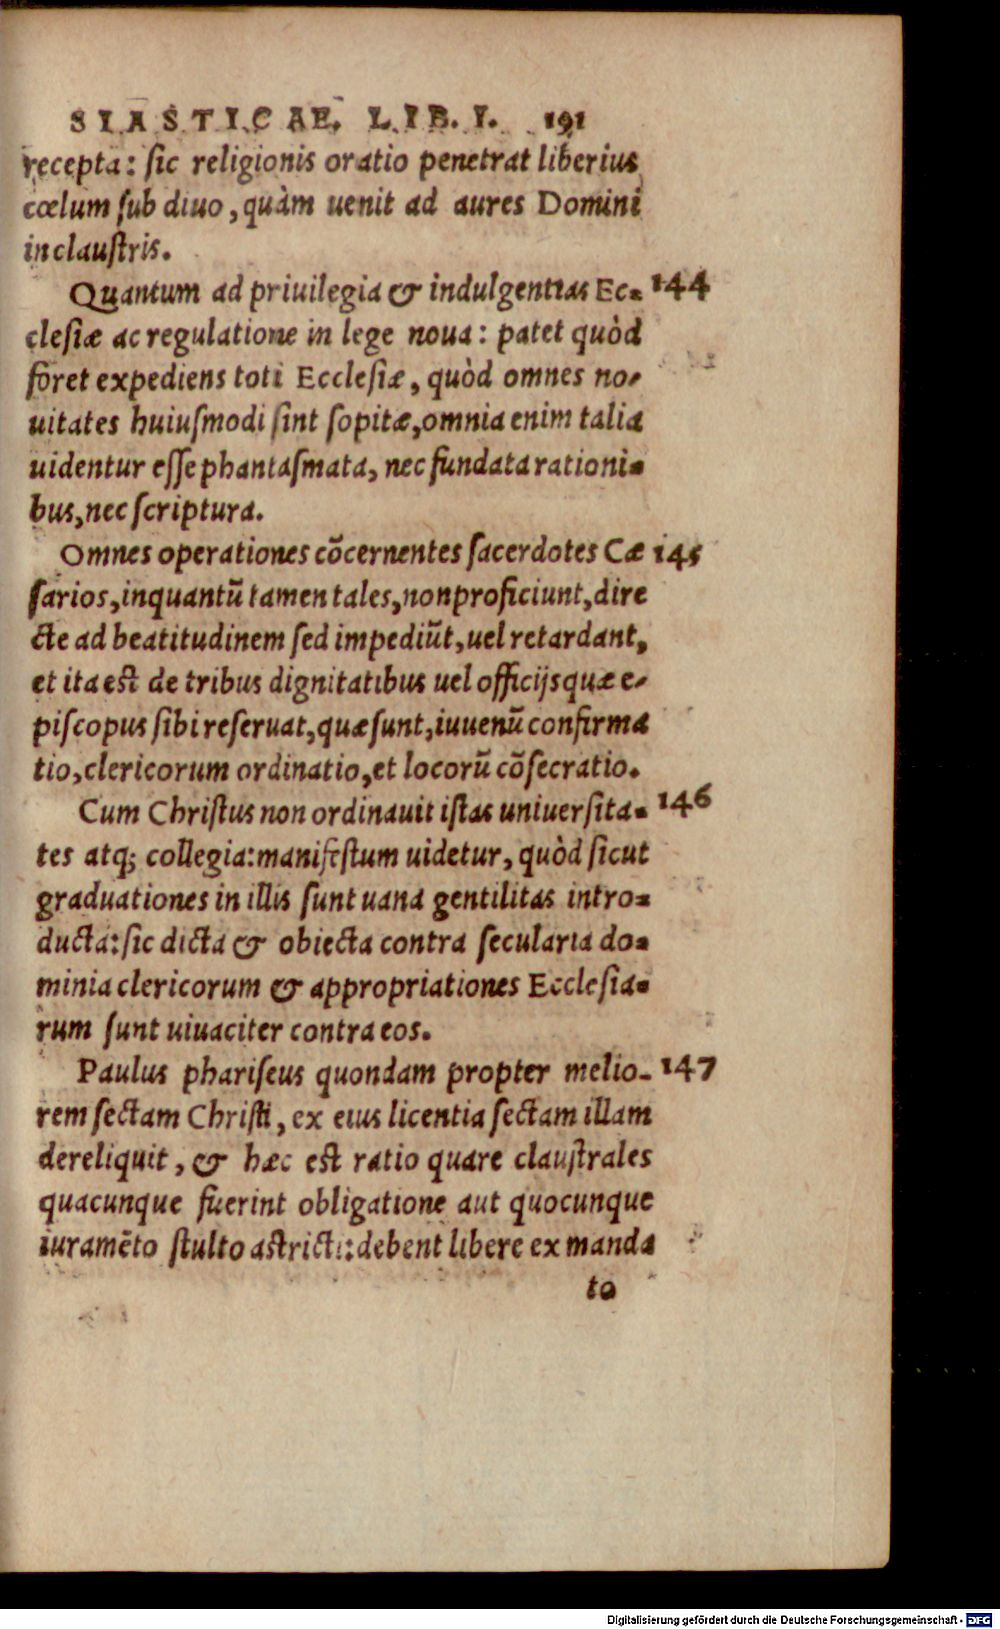 SIASTICAE. LIB. I. 191
recepta: sic religionis oratio penetrat liberius
cœlum sub diuo, quàm uenit ad aures Domini
in claustris.
Quantum ad priuilegia & indulgentias Ec- 144
clesiæ ac regulatione in lege noua: patet quòd
foret expediens toti Ecclesiæ, quòd omnes no-
uitates huiusmodi sint sopitæ, omnia enim talia
uidentur esse phantasmata, nec fundata rationi-
bus, nec scriptura.
Omnes operationes cõcernentes sacerdotes Cæ 145
sarios, inquantũ tamen tales, non proficiunt, dire
cte ad beatitudinem sed impediũt, uel retardant,
et ita est de tribus dignitatibus uel officijs quæ e-
piscopus sibi reseruat, quæ sunt, iuuenũ confirma
tio, clericorum ordinatio, et locorũ cõsecratio.
Cum Christus non ordinauit istas uniuersita- 146
tes atq; collegia: manifestum uidetur, quòd sicut
graduationes in illis sunt uana gentilitas intro-
ducta: sic dicta & obiecta contra secularia do-
minia clericorum & appropriationes Ecclesia-
rum sunt uiuaciter contra eos.
Paulus phariseus quondam propter melio- 147
rem sectam Christi, ex eius licentia sectam illam
dereliquit, & hæc est ratio quare claustrales
quacunque fuerint obligatione aut quocunque
iuramẽto stulto astricti: debent libere ex manda
to
Digitalisierung gefördert durch die Deutsche Forschungsgemeinschaft - DFG